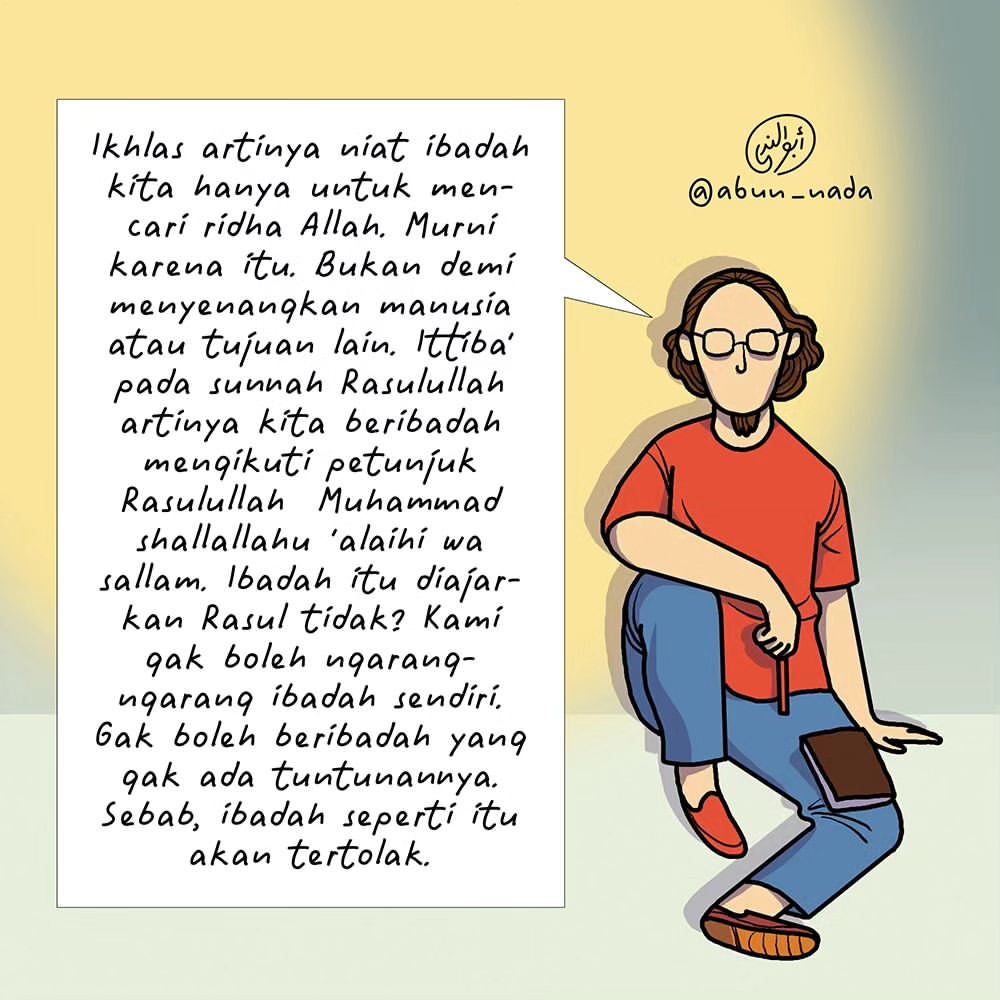 Ikhlas artinya niat ibadah
kita hanya untuk men-
cari ridha Allah. Murni
karena itu. Bukan demi
menyenangkan manusia
atau tujuan lain. Ittiba'
pada sunnah Rasulullah
artinya kita beribadah
mengikuti petunjuk
Rasulullah Muhammad
shallallahu 'alaihi wa
sallam. Ibadah itu diajar-
kan Rasul tidak? Kami
gak boleh ngarang-
ngarang ibadah sendiri.
Gak boleh beribadah yang
gak ada tuntunannya.
Sebab, ibadah seperti itu
akan tertolak.
أبو الندى
@abun_nada